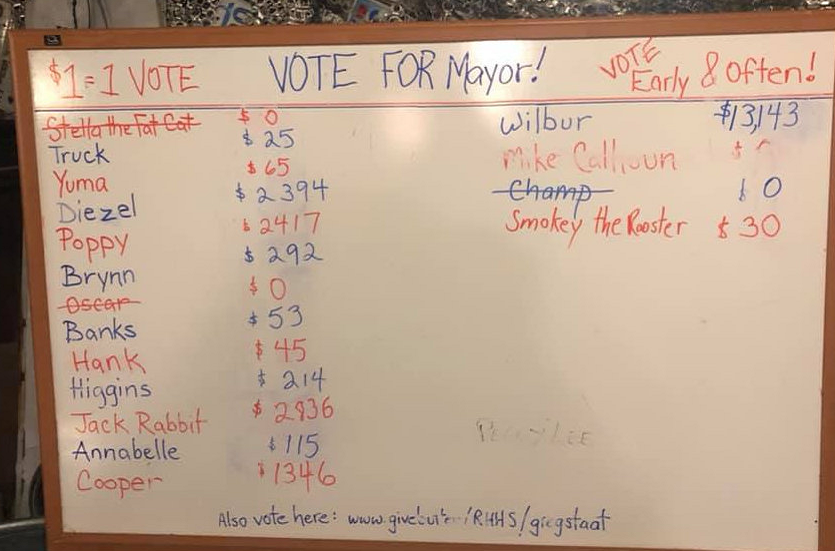 $1=1 VOTE VOTE FOR Mayor! VOTE Early & Often!
Stella the Fat Cat $ 0
Truck $ 25
Yuma $ 65
Diezel $ 2394
Poppy $ 2417
Brynn $ 292
Oscar $ 0
Banks $ 53
Hank $ 45
Higgins $ 214
Jack Rabbit $ 2836
Annabelle $ 115
Cooper $ 1346
Wilbur $13,143
Mike Calhoun $
Champ $ 0
Smokey the Rooster $ 30
Also vote here: